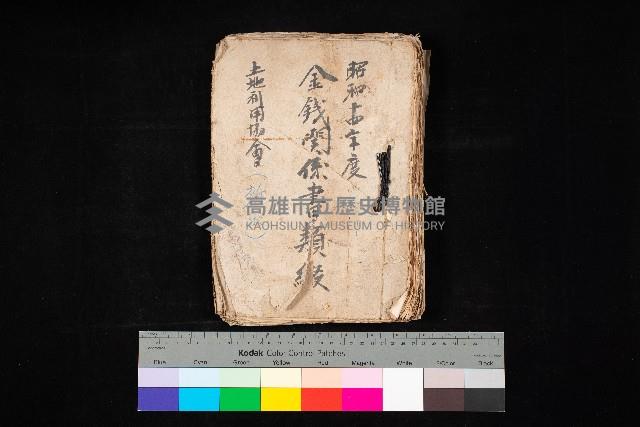 昭和十四年度
金銭関係書類綴
土地利用協會
高雄市立歷史博物館
KAOHSIUNG MUSEUM OF HISTORY
Kodak Color Control Patches
Blue Cyan Green Yellow Red Magenta White 3/Color Black